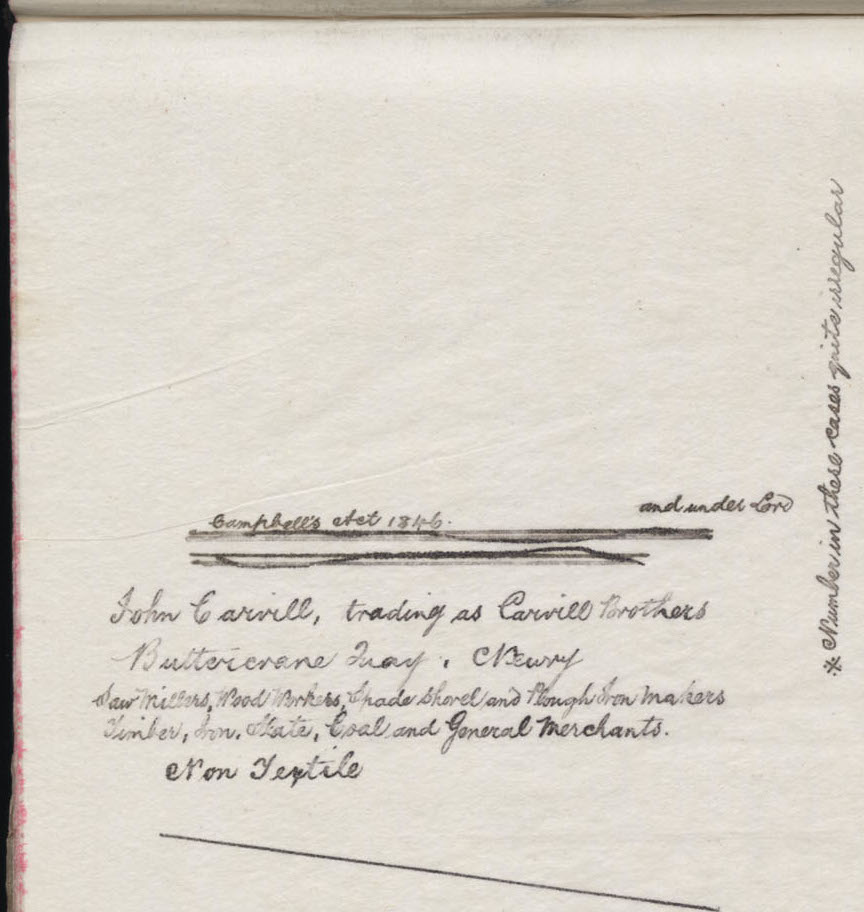 and under Lord
Campbell's Act 1846.
John Carvill, trading as Carvill Brothers
Buttercrane Quay, Newry
Saw Millers, Wood Workers, Spade Shovel and Plough Iron Makers
Timber, Iron, Slate, Coal and General Merchants.
Non Textile
* Number in these cases quite irregular